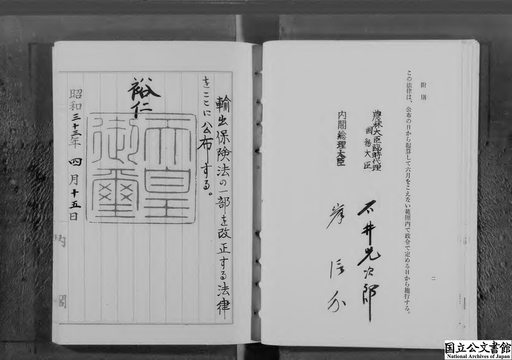 附則
この法律は、公布の日から起算して六月をこえない範囲内で政令で定める日から施行する。
二
農林大臣臨時代理
国務大臣
石井光次郎
内閣総理大臣
岸信介
輸出保険法の一部を改正する法律
をここに公布する。
裕仁
天皇
御璽
昭和三十三年四月十五日
内閣
国立公文書館
National Archives of Japan